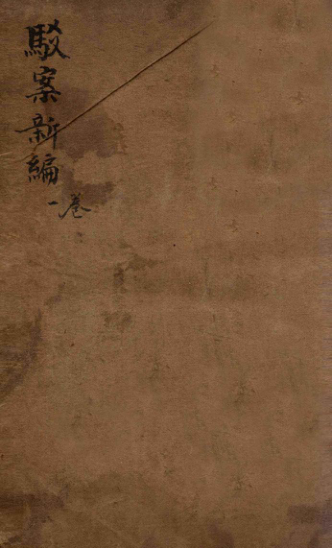 駁案新編
卷一